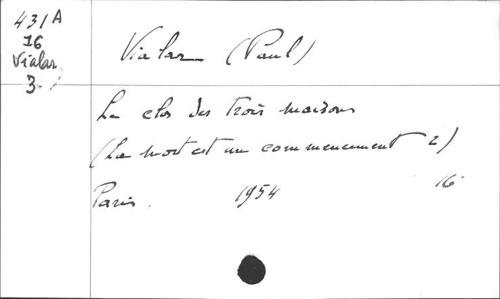 431A
16
Vialar
3
Vialar (Paul)
Le clos des trois maisons
(La mort est un commencement 2)
Paris 1954 16